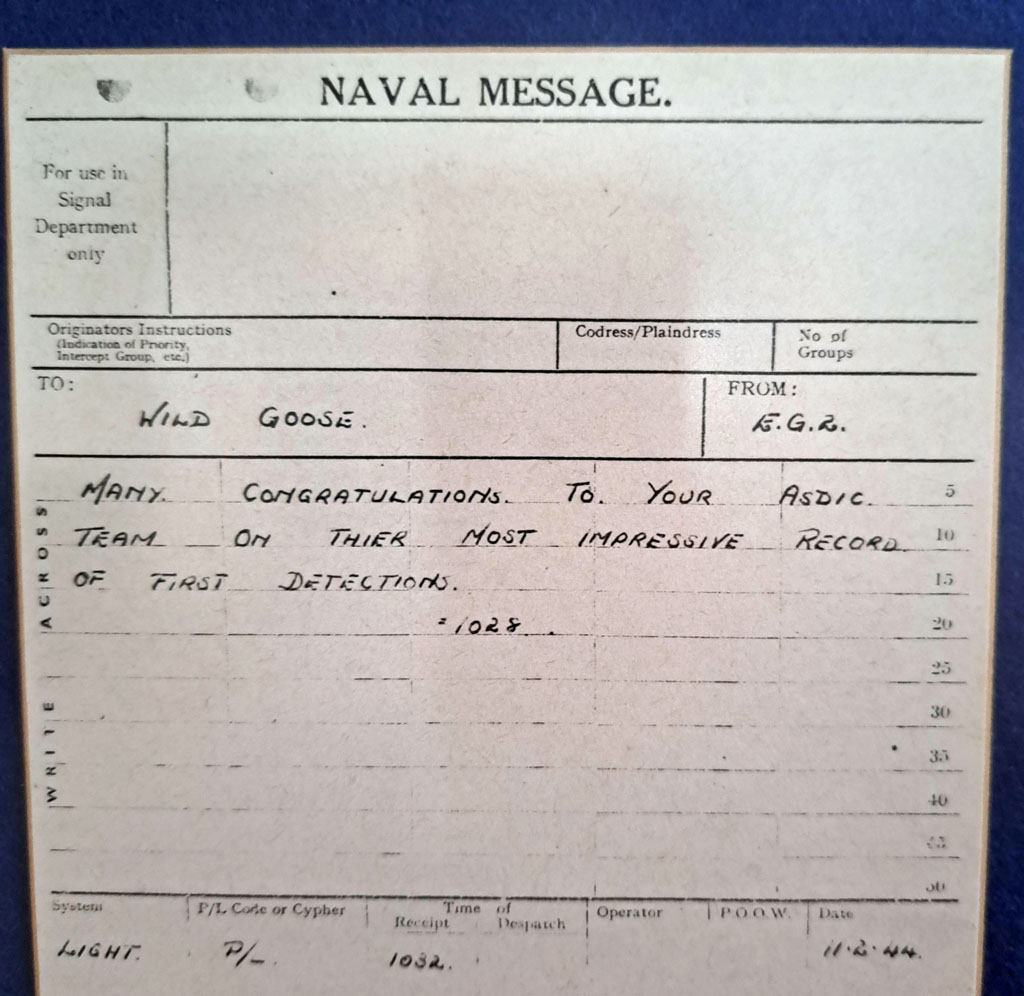 NAVAL MESSAGE.
For use in
Signal
Department
only
Originators Instructions
(Indication of Priority,
Intercept Group, etc.)
Codress/Plaindress
No of
Groups
TO:
WILD GOOSE.
FROM:
E.G.2.
MANY. CONGRATULATIONS. TO. YOUR ASDIC. 5
TEAM ON THIER MOST IMPRESSIVE RECORD. 10
OF FIRST DETECTIONS. 15
=1028. 20
25
30
35
40
45
50
WRITE ACROSS
System
P/L Code or Cypher
Time of
Receipt Despatch
Operator
P.O.O.W.
Date
LIGHT. P/_. 1032. 11·2·44.